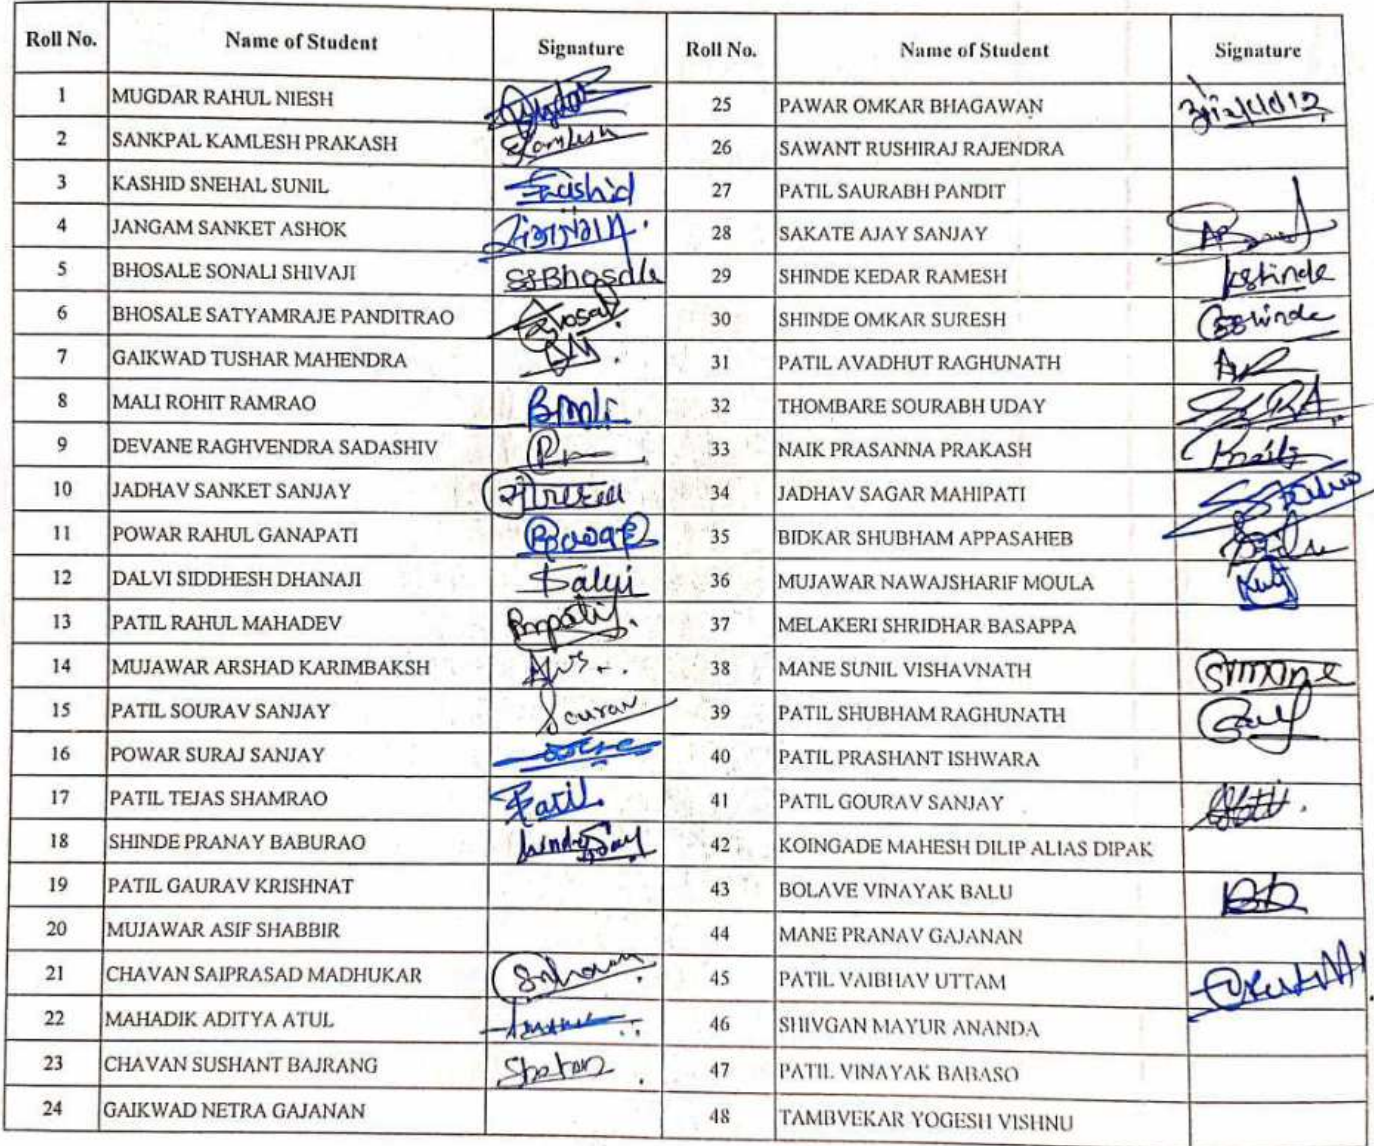 Roll No. Name of Student Signature Roll No. Name of Student Signature
1 MUGDAR RAHUL NIESH 25 PAWAR OMKAR BHAGAWAN
2 SANKPAL KAMLESH PRAKASH Kamlesh 26 SAWANT RUSHIRAJ RAJENDRA
3 KASHID SNEHAL SUNIL 27 PATIL SAURABH PANDIT
4 JANGAM SANKET ASHOK 28 SAKATE AJAY SANJAY
5 BHOSALE SONALI SHIVAJI SSBhosale 29 SHINDE KEDAR RAMESH kshinde
6 BHOSALE SATYAMRAJE PANDITRAO 30 SHINDE OMKAR SURESH
7 GAIKWAD TUSHAR MAHENDRA 31 PATIL AVADHUT RAGHUNATH
8 MALI ROHIT RAMRAO 32 THOMBARE SOURABH UDAY
9 DEVANE RAGHVENDRA SADASHIV 33 NAIK PRASANNA PRAKASH
10 JADHAV SANKET SANJAY 34 JADHAV SAGAR MAHIPATI
11 POWAR RAHUL GANAPATI 35 BIDKAR SHUBHAM APPASAHEB
12 DALVI SIDDHESH DHANAJI 36 MUJAWAR NAWAJSHARIF MOULA
13 PATIL RAHUL MAHADEV 37 MELAKERI SHRIDHAR BASAPPA
14 MUJAWAR ARSHAD KARIMBAKSH 38 MANE SUNIL VISHAVNATH
15 PATIL SOURAV SANJAY Sourav 39 PATIL SHUBHAM RAGHUNATH
16 POWAR SURAJ SANJAY 40 PATIL PRASHANT ISHWARA
17 PATIL TEJAS SHAMRAO 41 PATIL GOURAV SANJAY
18 SHINDE PRANAY BABURAO 42 KOINGADE MAHESH DILIP ALIAS DIPAK
19 PATIL GAURAV KRISHNAT 43 BOLAVE VINAYAK BALU
20 MUJAWAR ASIF SHABBIR 44 MANE PRANAV GAJANAN
21 CHAVAN SAIPRASAD MADHUKAR 45 PATIL VAIBHAV UTTAM
22 MAHADIK ADITYA ATUL 46 SHIVGAN MAYUR ANANDA
23 CHAVAN SUSHANT BAJRANG 47 PATIL VINAYAK BABASO
24 GAIKWAD NETRA GAJANAN 48 TAMBVEKAR YOGESH VISHNU